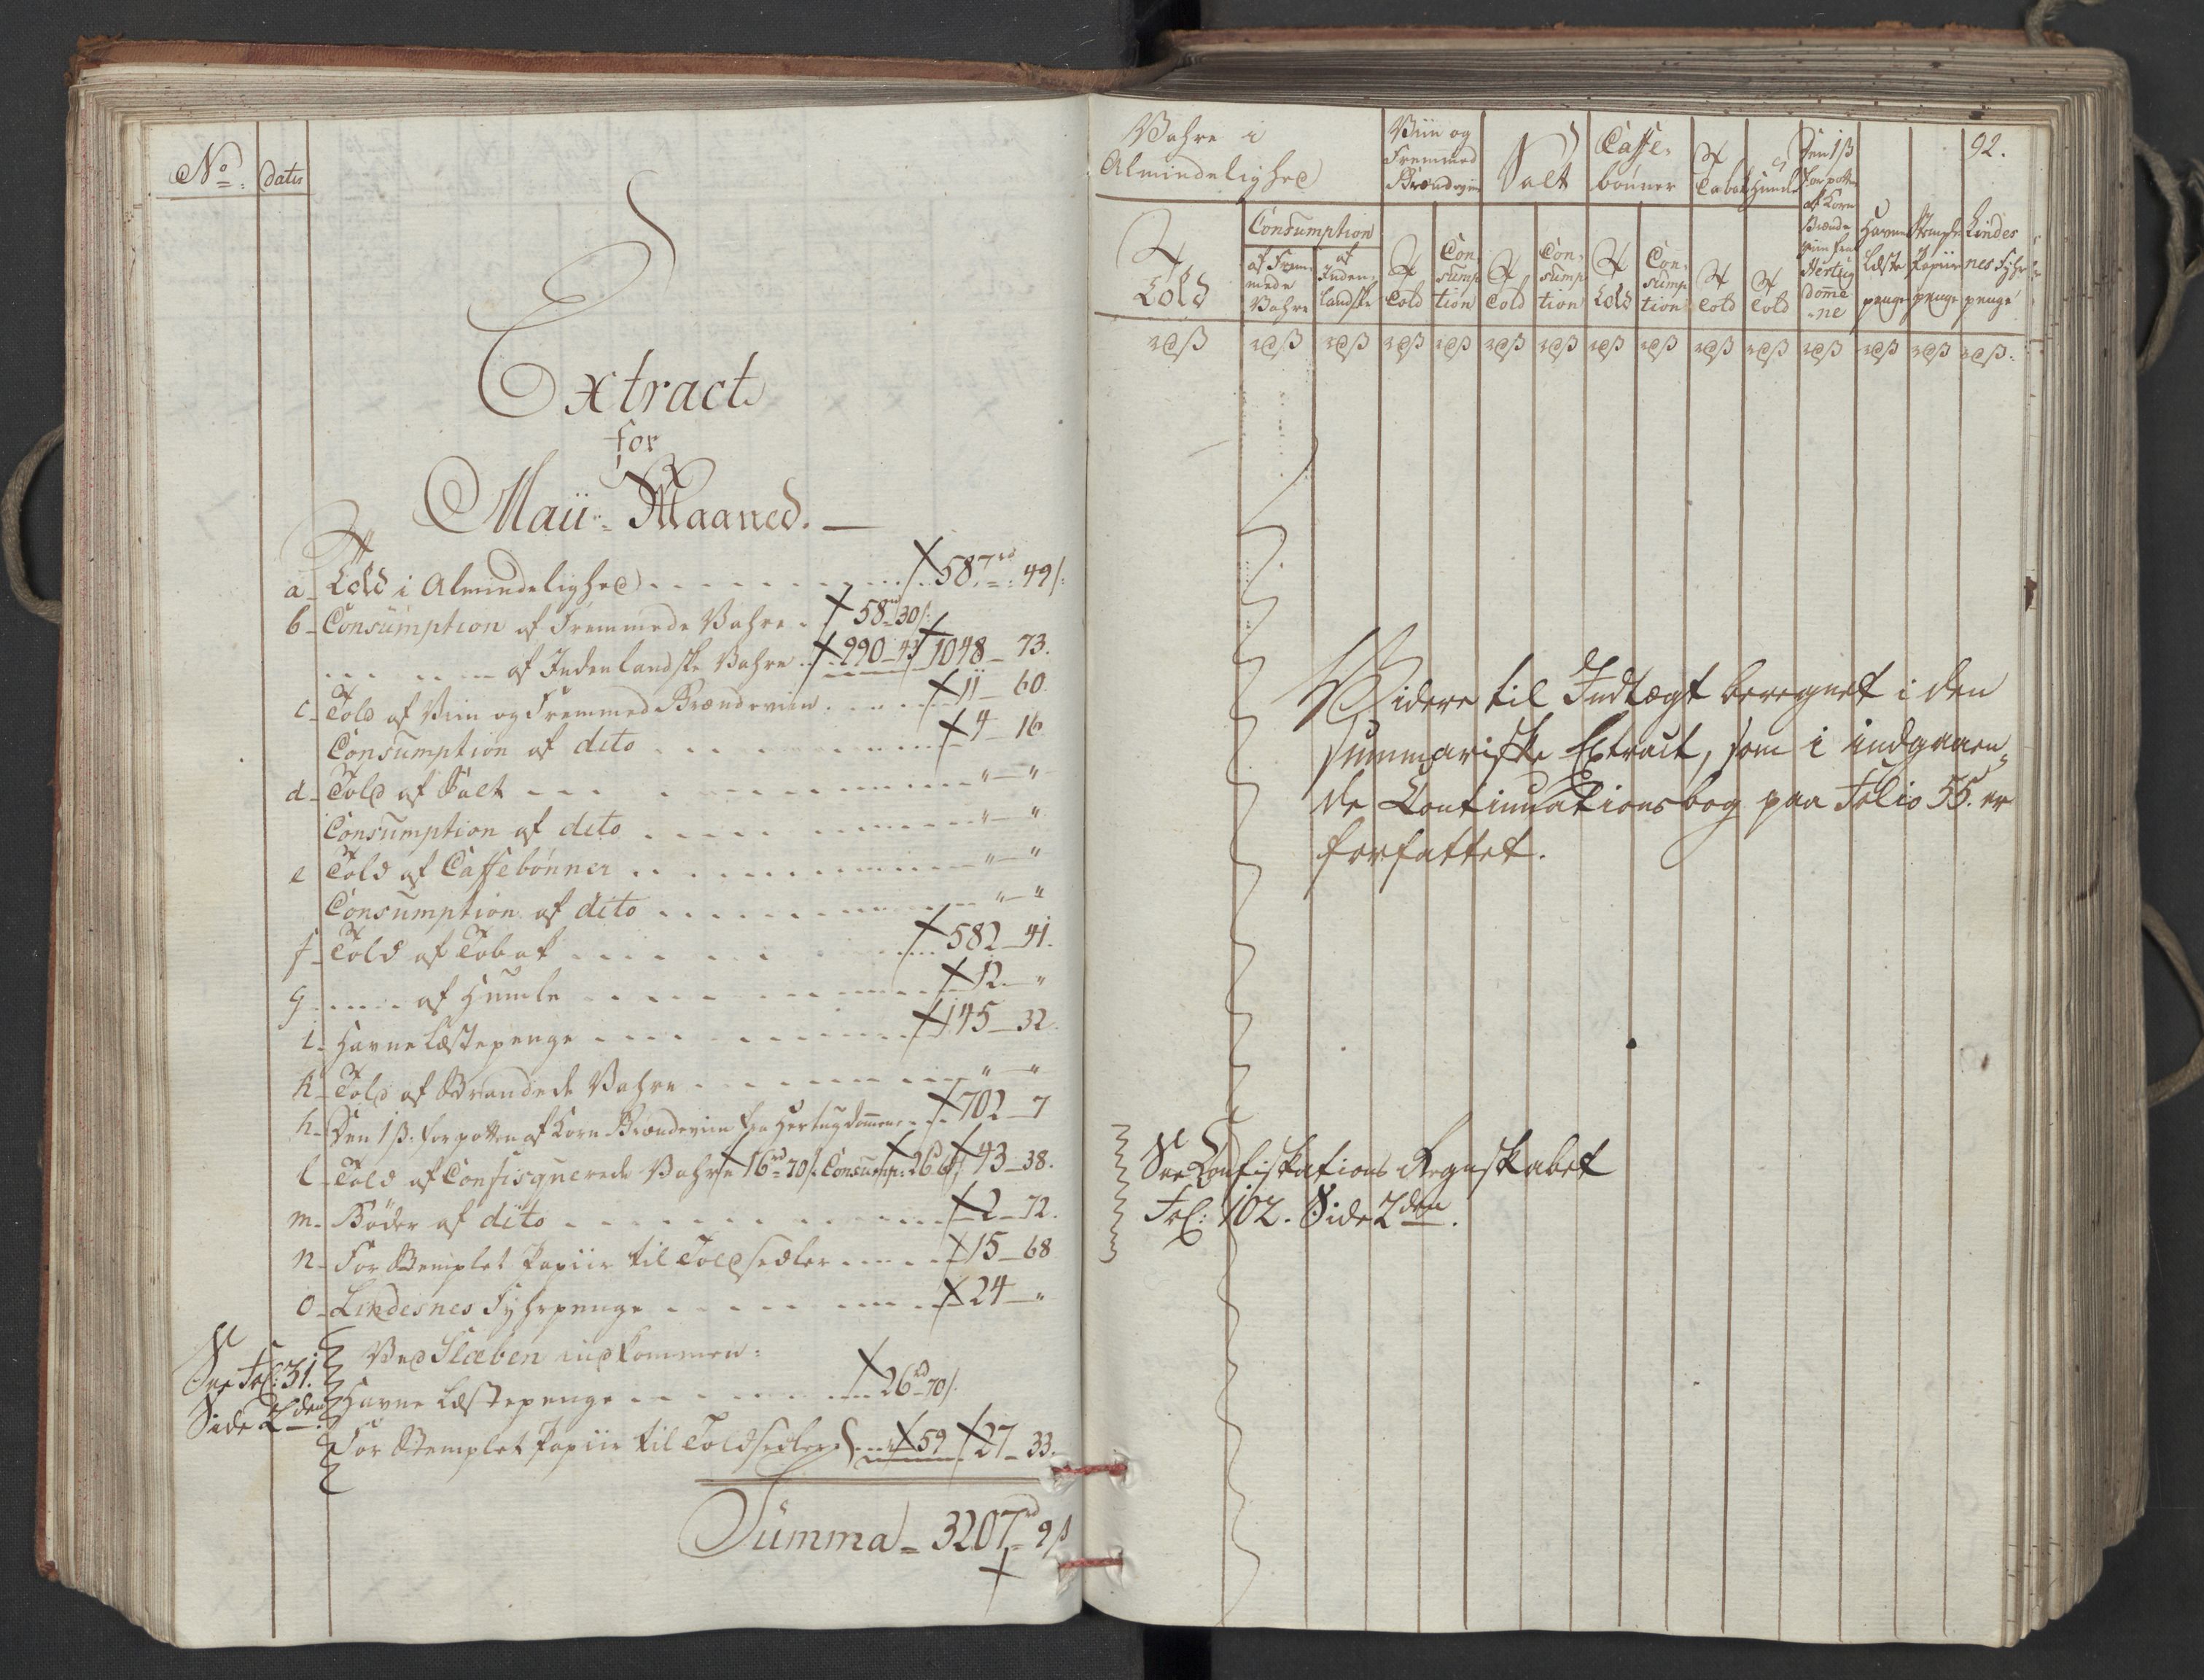 No: datus
Extract
for
Maii Maaned.
a Told i Almindelighed 587rd 49ß
b Consumption af Fremmede Vahre 58rd 30ß
af Indenlandske Vahre 990 43 1048 73.
c Told af Viin og Fremmed Brændeviin 11 60.
Consumption af dito 4 16
d Told af Salt " "
Consumption af dito " "
e Told af Caffebønner " "
Consumption af dito " "
f Told af Tobak 582 41.
g af Humle 12 "
i Havne Læstepenge 145 32.
k Told af Strandede Vahre " "
h Den 1ß for potten af Korn Brændeviin fra Hertugdømmene 702 7
l Told af Confisquerede Vahre 16rd 70ß Consump: 26rd 64ß 43 38.
m Bøder af dito 2 72.
n For Stemplet Papiir til Toldsedler 15 68
o Lindesnes Fyhrpenge 24 "
Ved Slæben indkommen:
See Fol: 31.
Side 2den
Havne Læstepenge 26rd 70ß
For Stemplet Papiir til Toldsedler 59 27 33.
Summa 3207rd 9ß
92.
Vahre i Almindelighed
Viin og Fremmed Brændeviin
Salt
Caffe bønner
Af Tabak
Af Humle
Den 1ß for potten af Korn Brændeviin fra Hertugdømmene
Havne Læste penge
Stemple Papiir penge
Lindesnes Fyhr penge
Af Told
Consumption
af Fremmede Vahre
af Indenlandske
Af Told
Consumption
Af Told
Consumption
Af Told
Consumption
Af Told
Af Told
rdß rdß rdß rdß rdß rdß rdß rdß rdß rdß rdß rdß rdß rdß rdß
Widere til Indtægt beregnet i den
summariske Extract, som i indgaaen
de Continuationsbog paa Folio 55. er
forfattet.
See Confiskations Regnskabet
Fol: 102. Side 2den.